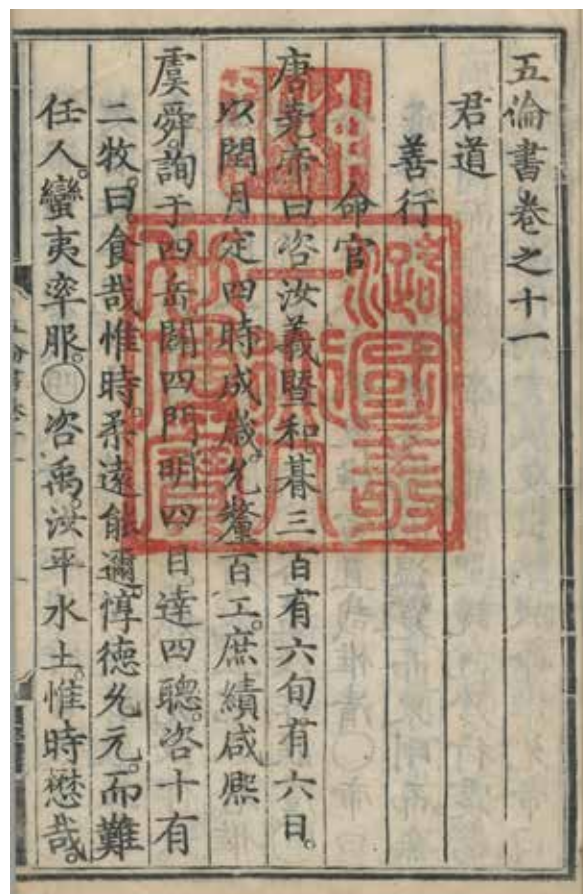 五倫書卷之十一
君道
善行
命官
唐堯帝曰咨汝羲暨和朞三百有六旬有六日。
以閏月定四時成歲。允釐百工。庶績咸熈
虞舜。詢于四岳闢四門明四目。達四聰。咨十有
二牧。曰。食哉惟時。柔遠能邇。惇德允元。而難
任人。蠻夷率服。〇咨禹。汝平水土。惟時懋哉。